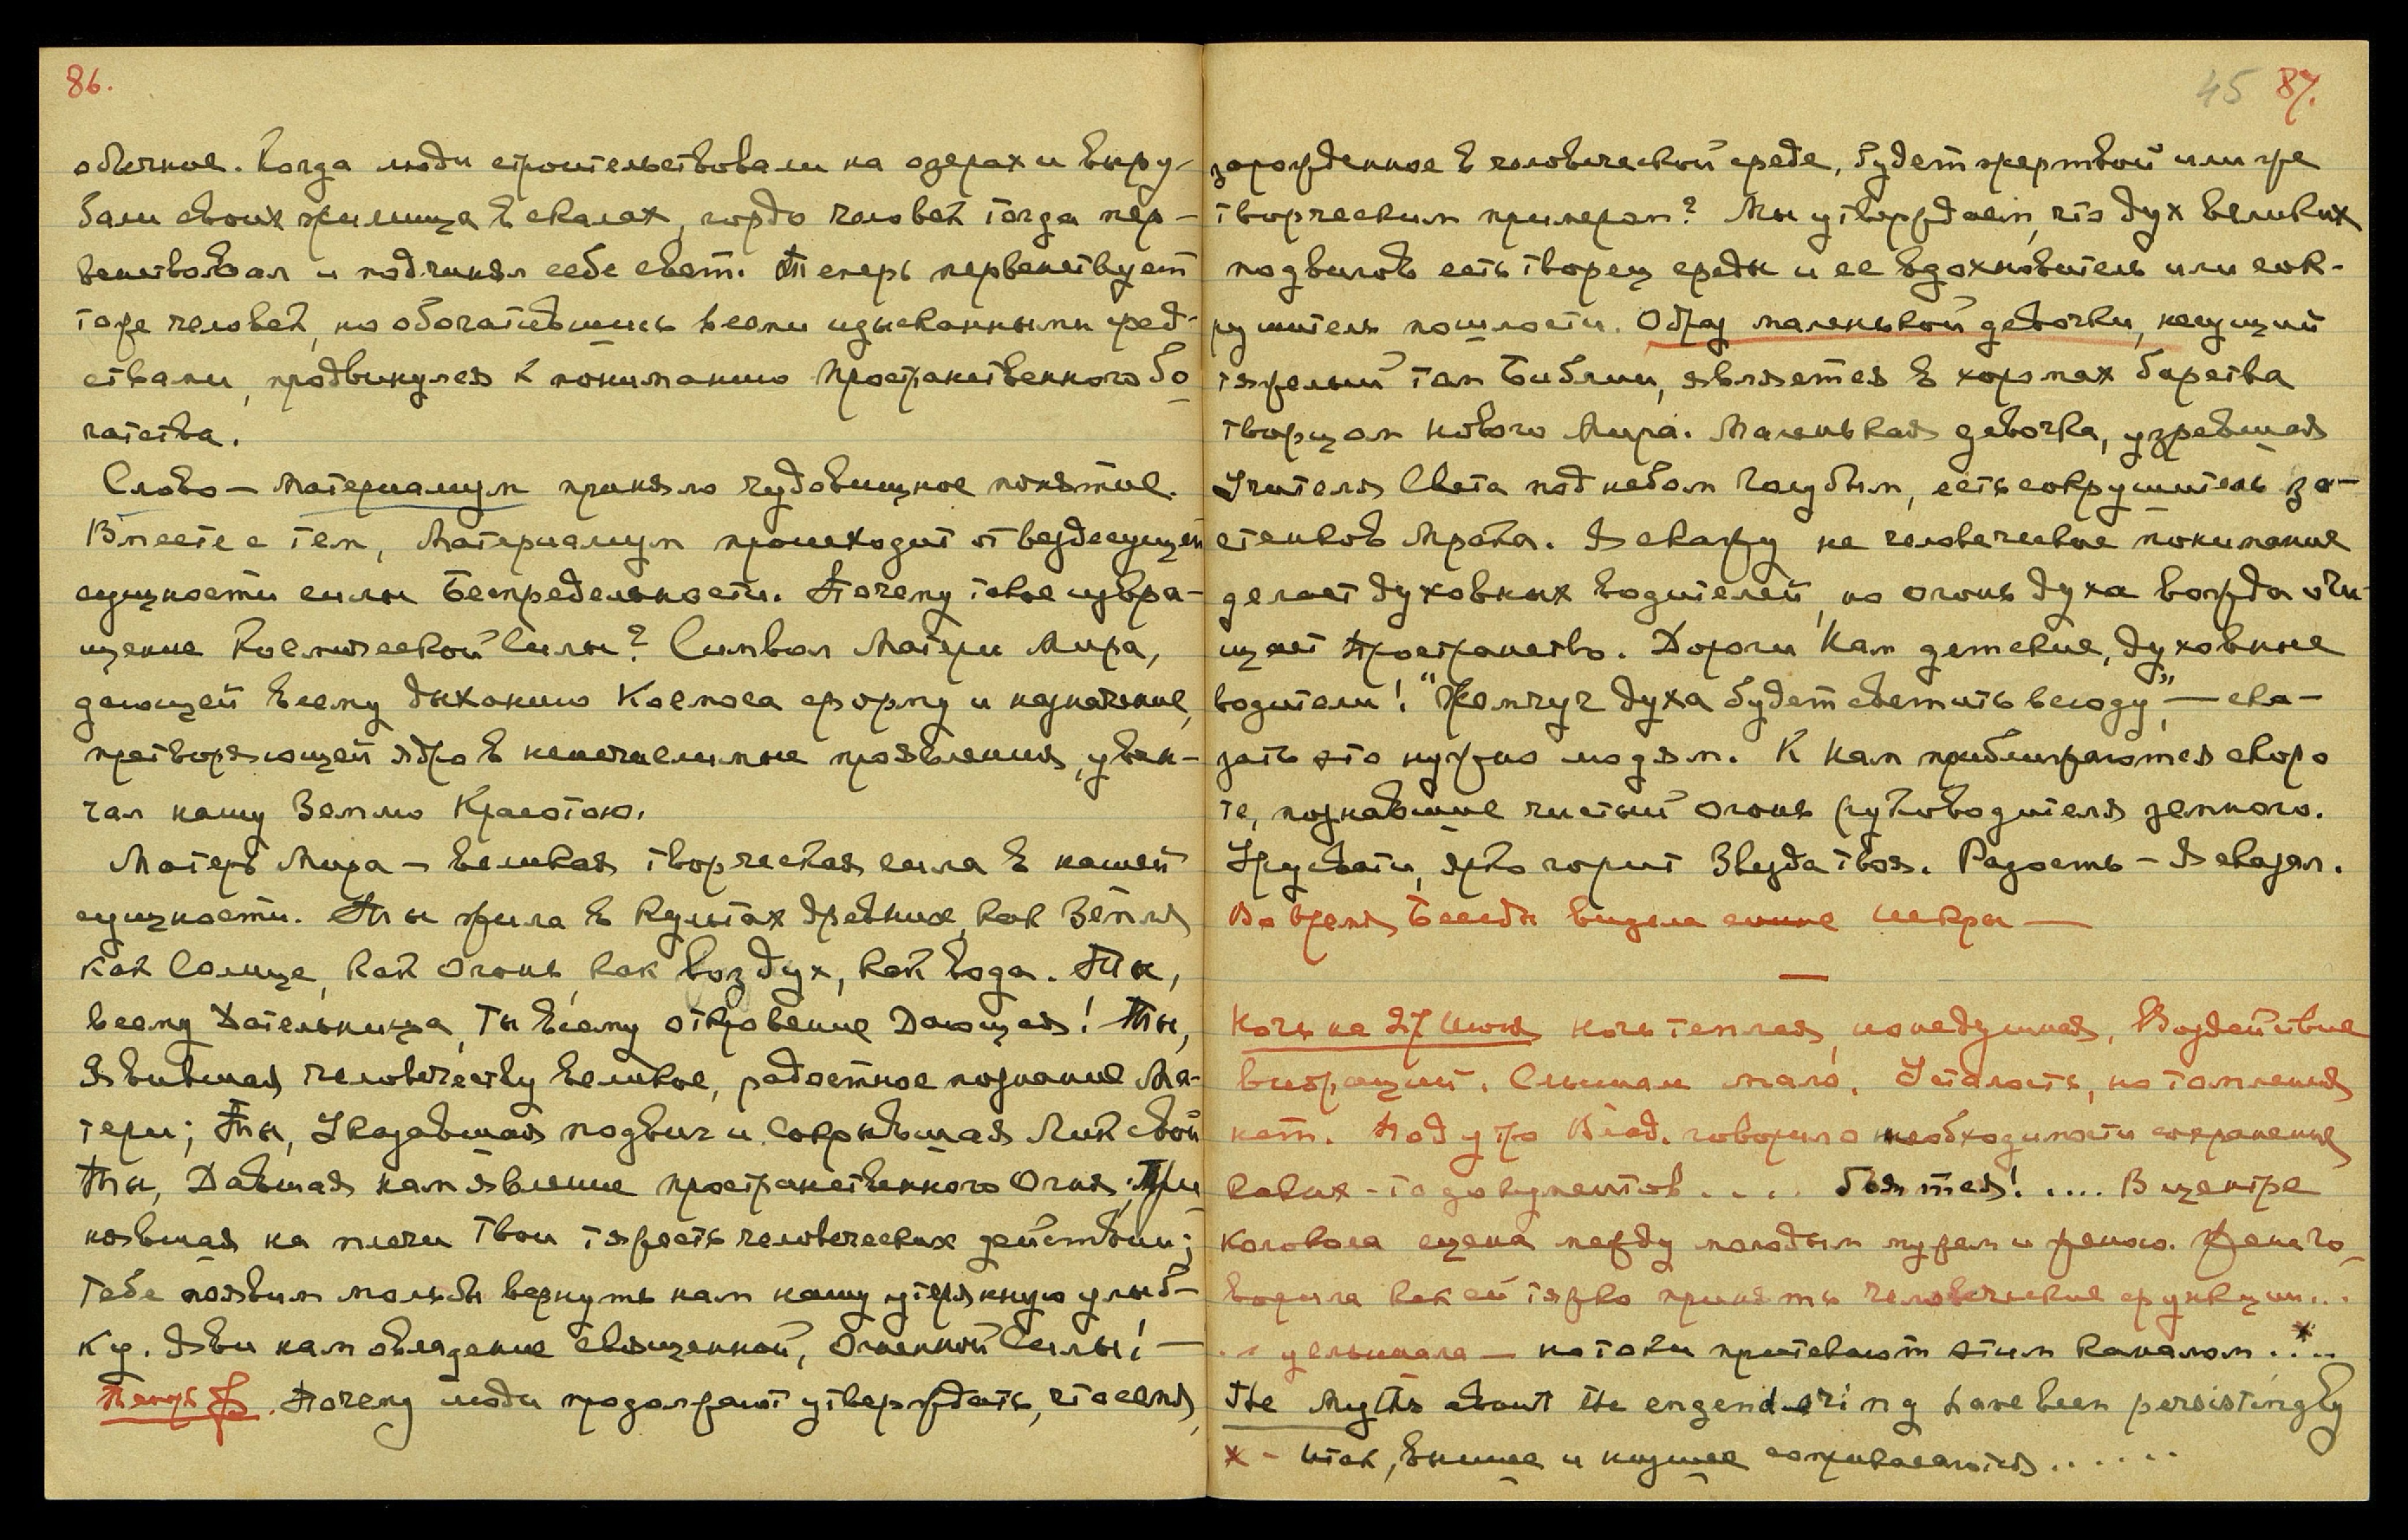 86.
обычное. Когда люди строительствовали на озерах и выру-
бали своих жилища в скалах, гордо человек тогда пер-
венствовал и подчинял себе свет. Теперь первенствует
тоже человек, но обогатившись всеми изысканными сред-
ствами, продвинулся к пониманию Пространственного бо
гатства.
Слово — Материализм приняло чудовищное понятие.
Вместе с тем, Материализм происходит от вездесущей
сущности силы Беспредельности. Почему такое извра-
щение Космической Силы? Символ Матери Мира,
дающей всему дыханию Космоса форму и назначение,
претворяющей ядро в неисчислимые проявления, увен-
чал нашу Землю Красотою.
Матерь Мира — великая творческая сила в нашей
сущности. Ты жила в культах древних, как Земля
как Солнце, как Огонь, как воздух, как вода. Ты,
всему Дательница, Ты всему откровение Дающая! Ты,
Явившая человечеству великое, радостное познание Ма-
тери; Ты, Указавшая подвиг и Сокрывшая Лик свой
Ты, Давшая нам явление пространственного Огня; При
нявшая на плечи Твои тяжесть человеческих действий;
Тебе появим мольбы вернуть нам нашу утерянную улыб-
ку. Яви нам овладение священной, Огненной Силы! —
Теперь Ф. Почему люди продолжают утверждать, что семя,
45 87.
зарожденное в человеческой среде, будет жертвой или же
творческим примером? Мы утверждаем, что дух великих
подвигов есть творец среды и ее вдохновитель или сок-
рушитель пошлости. Образ маленькой девочки, несущий
тяжелый том Библии, является в хоромах барства
творцом нового Мира. Маленькая девочка, узревшая
Учителя Света под небом голубым, есть сокрушитель за-
стенков Мрака. Я скажу не человеческое понимание
делает духовных водителей, но огонь духа вождя очи-
щает пространство. Дороги Нам детские, духовные
водители! "Жемчуг духа будет светить всюду", — ска-
зать это нужно людям. К Нам приближаются скоро
те, познавшие чистый огонь руководителя земного.
Урусвати, ярко горит Звезда твоя. Радость — Я сказал.
Во время Беседы видела синие искры —
Ночь на 27 Июня ночь теплая, но не душная. Воздействие
вибраций. Слышали мало. Усталость, но томления
нет. Под утро Влад. говорил о необходимости сохранения
каких-то документов .... бьются! .... В центре
колокола сцена между молодым мужем и женою. Жена го-
ворила как ей тяжко принять человеческие функции...
.. услышала — но токи притекают этим каналом .*..
The Myths about the engendering have been persistingly
x - Итак, высшее и низшее соприкасаются ......